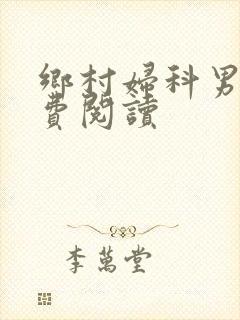 鄉村婦科男
費閱讀
李萬堂